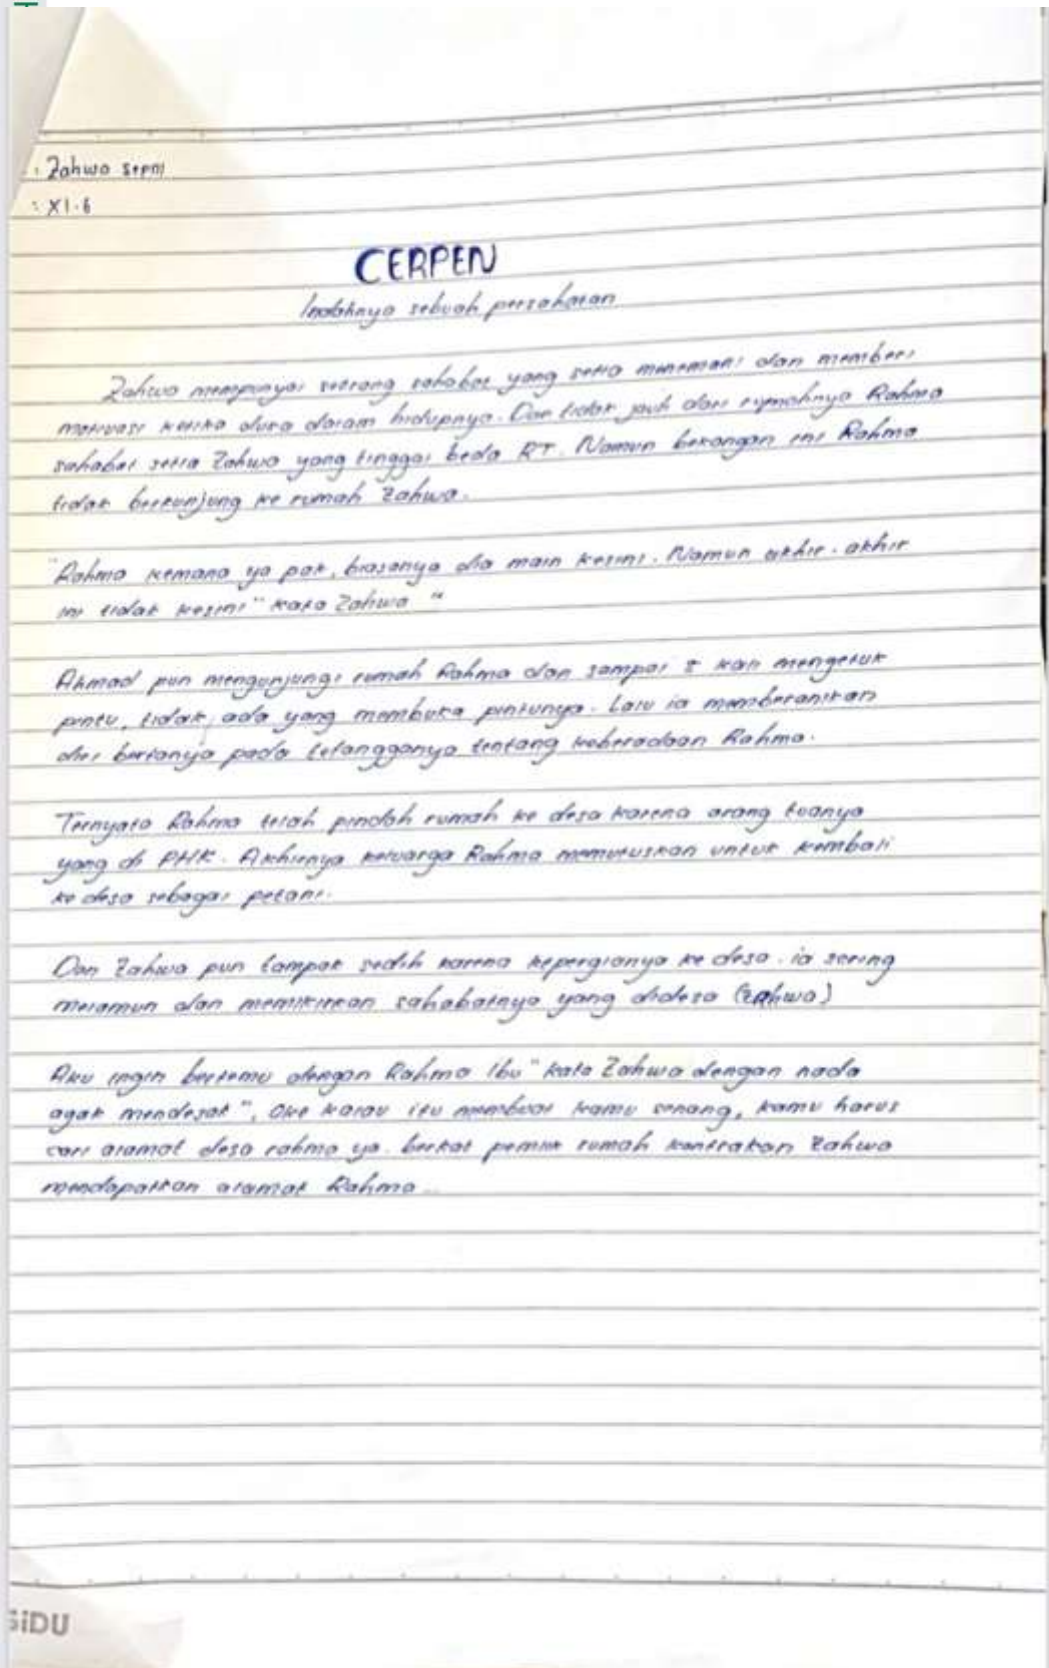 : Zahwa
: XI.6
CERPEN
Indahnya sebuah persahatan
Zahwa mempunyai seorang sahabat yang setia menemani dan memberi
motivasi ketika duka dalam hidupnya. Dan tidak jauh dari rumahnya Rahma
sahabat setia Zahwa yang tinggal beda RT. Namun bekangan ini Rahma
tidak berkunjung ke rumah Zahwa.
"Rahma kemana ya pak, biasanya dia main kesini. Namun akhir-akhir
ini tidak kesini" kata Zahwa "
Ahmad pun mengunjungi rumah Rahma dan sampai kali mengetuk
pintu, tidak ada yang membuka pintunya. Lalu ia memberanikan
diri bertanya pada tetangganya tentang keberadaan Rahma.
Ternyata Rahma telah pindah rumah ke desa karena orang tuanya
yang di PHK. Akhirnya keluarga Rahma memutuskan untuk kembali
ke desa sebagai petani.
Dan Zahwa pun tampak sedih karena kepergianya ke desa. ia sering
melamun dan memikirkan sahabatnya yang didesa (zahwa)
Aku ingin bertemu dengan Rahma ibu" kata Zahwa dengan nada
agak mendesak", oke kalau itu membuat kamu senang, kamu harus
cari alamat desa rahma ya. berkat pemilik rumah kontrakan Zahwa
mendapatkan alamat Rahma...
SiDU